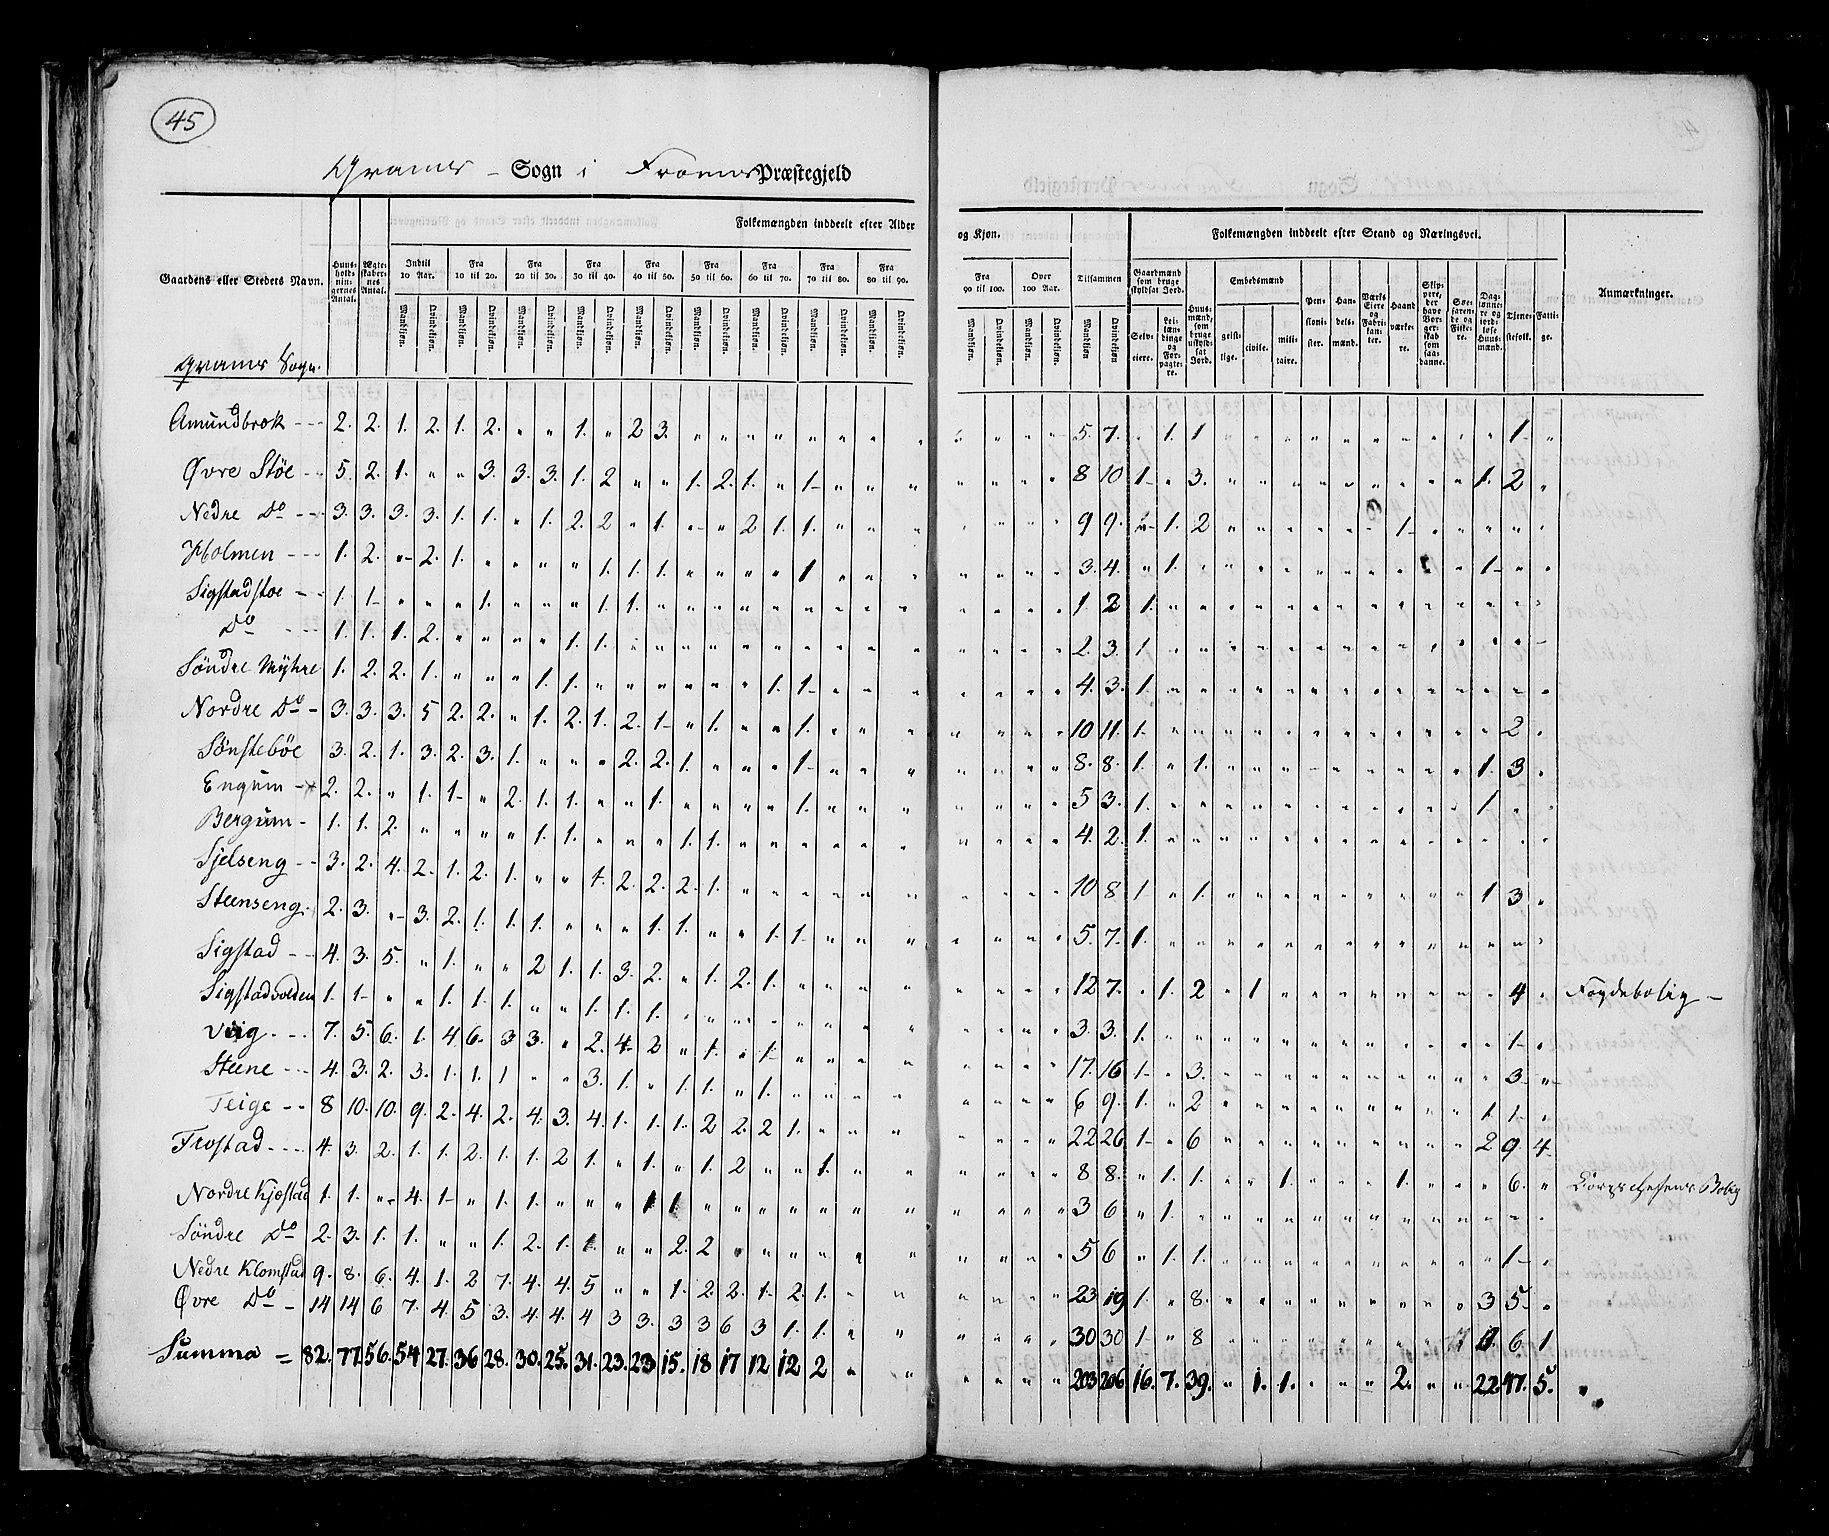 45
Sogn i Præstegjeld
Folkemængden inddeelt efter Alder
og Kjøn.
Folkemængden inddeelt efter Stand og Næringsvei.
Gaardens eller Stedets Navn.
Huusholdningernes Antal.
Ægteskabernes Antal.
Indtil 10 Aar.
Fra 10 til 20.
Fra 20 til 30.
Fra 30 til 40.
Fra 40 til 50.
Fra 50 til 60.
Fra 60 til 70.
Fra 70 til 80.
Fra 80 til 90.
Fra 90 til 100.
Over 100 Aar.
Tilsammen
Gaardmænd som bruge skyldsat Jord.
Huusmænd, som bruge uskyldsat Jord.
Embedsmænd
Pensionister.
Handelsmænd.
Værks Eiere og Fabrikanter.
Haandværkere.
Skippere, der have Borgerskab som saadanne.
Søefarende og Fiskere.
Daglønnere og jordløse Huusmænd.
Tjenestefolk.
Fattige.
Anmærkninger.
Mandkjøn. Qvindekjøn.
Selveiere.
Leilændinge og Forpagtere.
geistlige.
civile.
militaire.
Sogn.
Amundbrok 2. 2. 1. 2. 1. 2. 1. 2 3. 5. 7. 1. 1 1
Øvre Stöe 5. 2. 1. 3. 3. 3. 1. 2 1. 2. 1. 1 8 10 1 3. 1. 2
Nedre Do 3. 3. 3. 3. 1. 1. 1. 2. 2 1. 2 1. 1. 9 9. 1. 2 1
Holmen 1. 2. 2. 1. 1. 1. 1. 1 3. 4. 1. 1
Sigstadstoe 1. 1 1. 1. 1. 1. 2 1.
Do 1. 1. 1. 2. 1. 1. 2. 3. 1.
Söndre Myhre 1. 2. 2. 1. 1. 1. 1. 1 4. 3. 1.
Nordre Do 3. 3. 3. 5 2. 2. 1. 2. 1. 2. 1 1. 1. 10 11. 1. 2
Sönsteböe 3. 2. 1. 3. 2. 3. 1. 2. 2. 1. 1 8. 8. 1. 1. 1. 3.
Engum 2. 2. 1. 1 2. 1. 1. 1. 1. 5 3. 1. 1
Bergum 1. 1. 2. 1. 1. 1. 1. 4. 2. 1.
Sjelseng 3. 2. 4. 2. 1. 2. 1. 1. 2. 2. 2. 1. 10 8 1. 1. 1 3.
Steenseng 2. 3. 3. 2. 1. 1. 1. 1. 1. 1. 1. 5. 7. 1.
Sigstad 4. 3. 5. 1. 2 1. 1. 3. 2. 1. 2. 1. 12 7. 1. 2 1 4 Fogdebolig
Sigstadvolden 1. 1 1. 1. 1. 1. 1. 1. 3. 3. 1. 1
Veig 7. 5. 6. 1. 4 6. 3 3. 2. 4. 2 1. 1 17. 16 1 3. 3
Steene 4. 3. 2. 3. 1. 1. 1 3. 1. 1. 1. 1. 6 9. 1. 2 1 1
Teige 8 10. 10. 9. 2. 4. 2. 4. 3. 4. 1. 1. 1. 2 2. 2 1. 22 26 1 6 2 9. 4
Frostad 4. 3. 2. 1. 1. 2. 1. 1. 2 1. 1. 1. 2 1. 8 8. 1. 1. 1. 1. 6. Bolig
Nordre Kjøstad 1. 1. 4. 1 1. 1. 1 1. 3 6 1.
Söndre Do 2. 3. 1. 1. 1. 2. 1. 1 2. 2 5 6 1. 1. 1
Nedre Klomstad 9. 8. 6. 4. 1. 2 7. 4. 4. 5 1. 2 2. 1 2. 1. 23 19 1. 8. 3 5
Øvre Do 14 14 6 7. 4. 5 3. 4. 4. 4 3 3. 3 3 6 3 1. 1. 30 30 1 8 6 1
Summa = 82. 77. 56. 54 27. 36 28. 30. 25. 31. 23. 23 15. 18 17 12 12 2 203 206 16. 7. 39. 1. 1. 2. 22 47. 5.